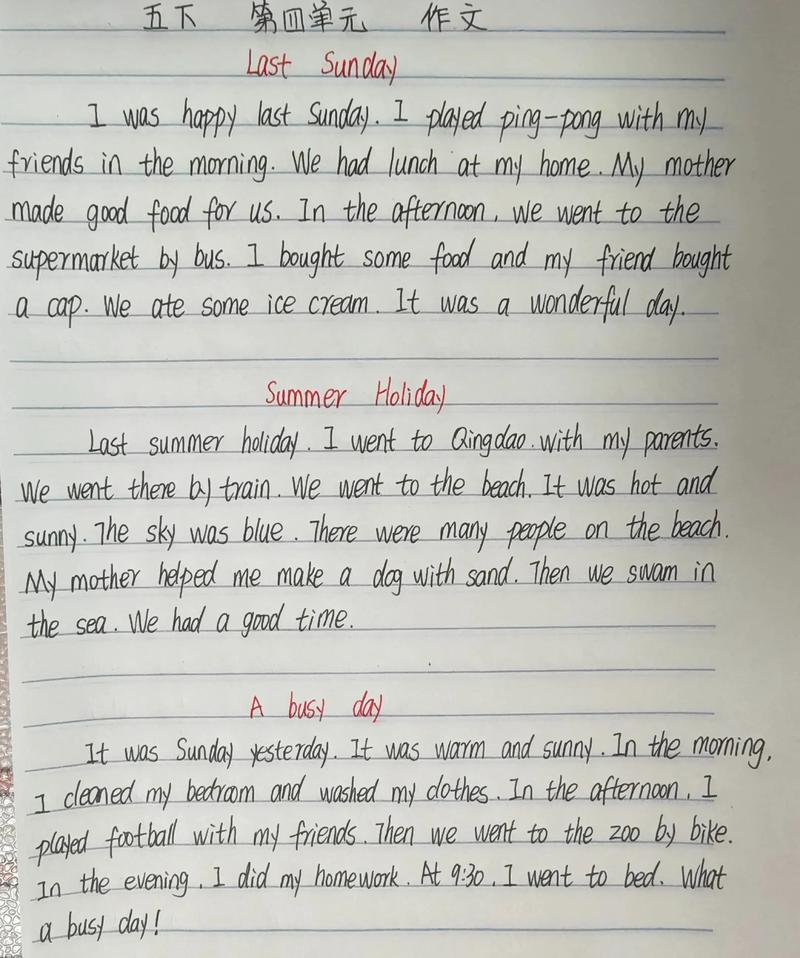 五下 第四单元 作文
Last Sunday
I was happy last Sunday. I played ping-pong with my
friends in the morning. We had lunch at my home. My mother
made good food for us. In the afternoon, we went to the
supermarket by bus. I bought some food and my friend bought
a cap. We ate some ice cream. It was a wonderful day.
Summer Holiday
Last summer holiday. I went to Qingdao with my parents.
We went there by train. We went to the beach. It was hot and
sunny. The sky was blue. There were many people on the beach.
My mother helped me make a dog with sand. Then we swam in
the sea. We had a good time.
A busy day
It was Sunday yesterday. It was warm and sunny. In the morning,
I cleaned my bedroom and washed my clothes. In the afternoon, I
played football with my friends. Then we went to the zoo by bike.
In the evening, I did my homework. At 9:30, I went to bed. What
a busy day!